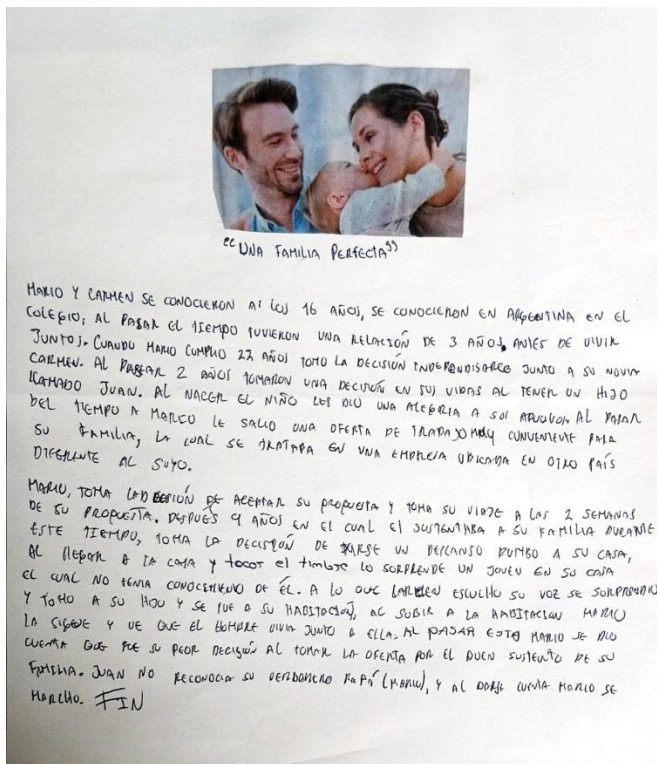 "UNA FAMILIA PERFECTA"
MARIO Y CARMEN SE CONOCIERON A LOS 16 AÑOS, SE CONOCIERON EN ARGENTINA EN EL
COLEGIO, AL PASAR EL TIEMPO TUVIERON UNA RELACIÓN DE 3 AÑOS, ANTES DE VIVIR
JUNTOS. CUANDO MARIO CUMPLIO 22 AÑOS TOMO LA DECISIÓN INDEPENDISARCE JUNTO A SU NOVIA
CARMEN. AL PASAR 2 AÑOS TOMARON UNA DECISIÓN EN SUS VIDAS AL TENER UN HIJO
LLAMADO JUAN. AL NACER EL NIÑO LES DIO UNA ALEGRIA A SUS AL PASAR
DEL TIEMPO A MARIO LE SALIO UNA OFERTA DE TRABAJO MUY CONVENIENTE PARA
SU FAMILIA, LA CUAL SE TRATABA EN UNA EMPRESA UBICADA EN OTRO PAÍS
DIFERENTE AL SUYO.
MARIO, TOMA LA DE ACEPTAR SU PROPUESTA Y TOMA SU VIAJE A LAS 2 SEMANAS
DE SU PROPUESTA. DESPUÉS 9 AÑOS EN EL CUAL EL SUSTENTABA A SU FAMILIA DURANTE
ESTE TIEMPO, TOMA LA DECISIÓN DE DARSE UN DESCANSO RUMBO A SU CASA,
AL LLEGAR A LA CASA Y tocar el timbre LO SORPRENDE UN JOVEN EN SU CASA
EL CUAL NO TENIA CONOCIMIENTO DE ÉL. A LO QUE CARMEN ESCUCHO SU VOZ SE SORPRENDIO
Y TOMO A SU HIJO Y SE FUE A SU HABITACIÓN, AL SUBIR A LA HABITACION MARIO
LA SIGUE Y VE QUE EL HOMBRE VIVIA JUNTO A ELLA. AL PASAR ESTO MARIO SE DIO
CUENTA QUE FUE SU PEOR DECISIÓN AL TOMAR LA OFERTA POR EL BUEN SUSTENTO DE SU
FAMILIA. JUAN NO RECONOCIA SU VERDADERO PAPÁ (MARIO), Y AL DARSE CUENTA MARIO SE
MARCHO. FIN